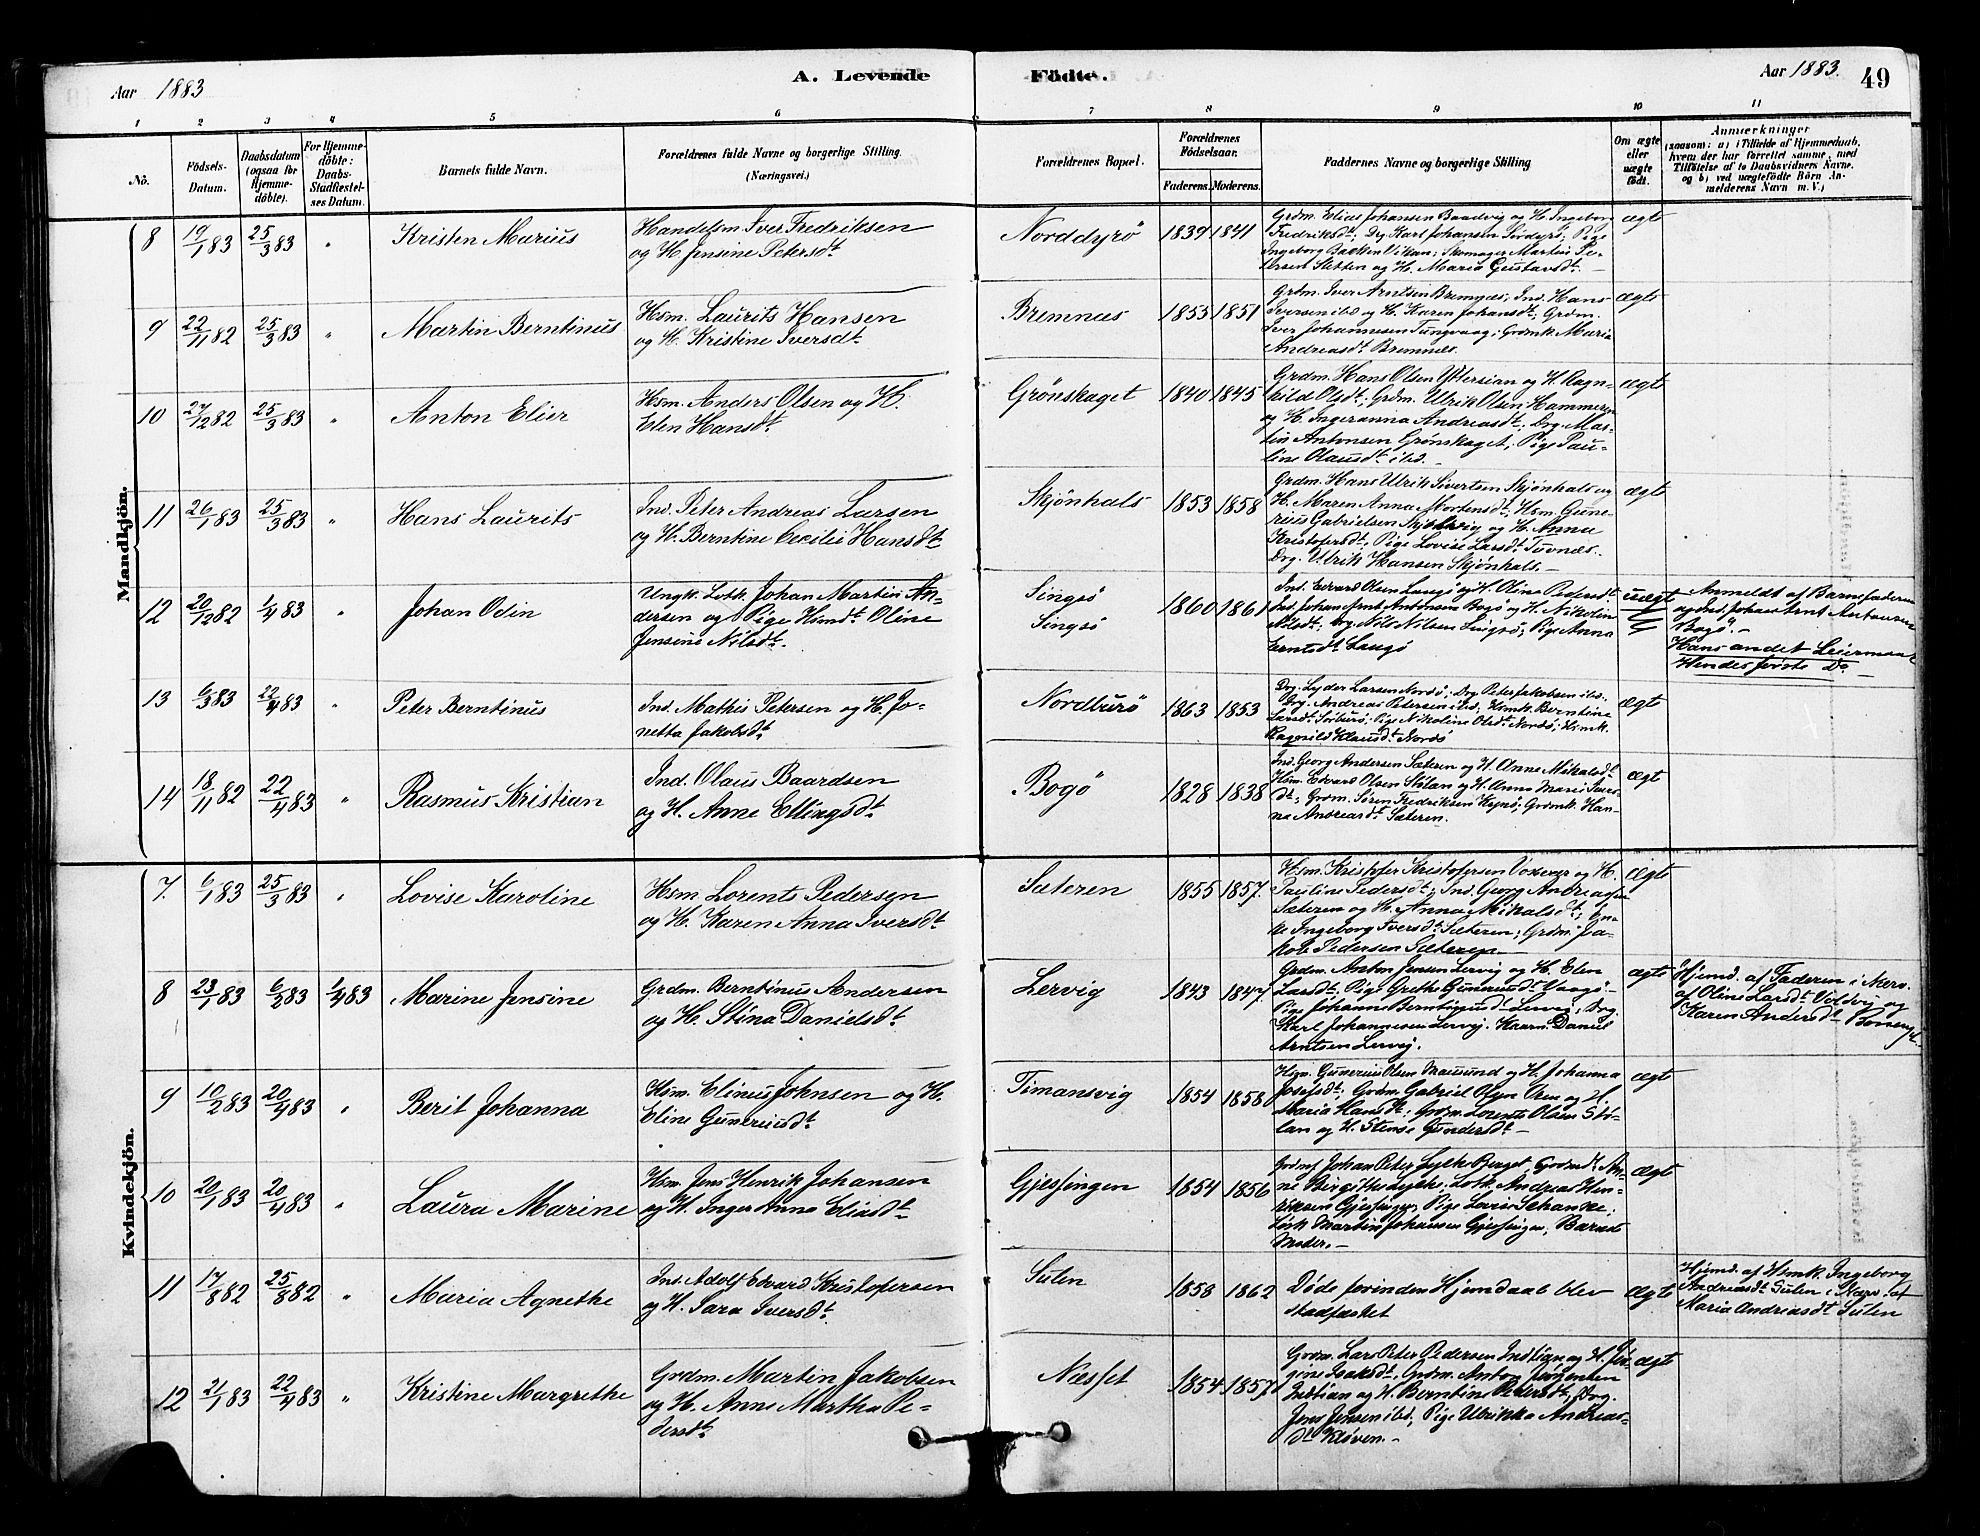 Aar 1883
A. Levende
Födte.
Aar 1883.
49
1 2 3 4 5 6 7 8 9 10 11
No.
Födsels-
Datum.
Daabsdatum
(ogsaa for
Hjemme-
döbte).
For Hjemme-
döbte:
Daabs-
Stadfæstel-
ses Datum.
Barnets fulde Navn.
Forældrenes fulde Navne og borgerlige Stilling.
(Næringsvei.)
Forældrenes Bopæl.
Forældrenes
Födselsaar.
Faderens. Moderens.
Faddernes Navne og borgerlige Stilling
Om ægte
eller
uægte
födt.
Anmærkninger
(saasom: a) i Tilfælde af Hjemmedaab,
hvem der har forrettet samme, med
Tilföielse af to Daabsvidners Navne,
og b) ved uægtefödte Börn An-
melderens Navn m. V.)
Mandkjön.
8 19/1 83 25/3 83 " Kristen Marius
Handelsm. Iver Fredriksen
og H. Jensine Petersdt.
Norddyrö 1839 1841
Grdm. Elias Johansen Baadvig og H. Ingeborg
Fredriksdt; Drg. Karl Johansen Sördyrö; Pige
Ingeborg Bakken Vikan; Skomager Martin Pe-
tersen Sletten og H. Maria Gustavsdt. –
ægte
9 22/11 82 25/3 83 " Martin Berntinus
Hsm. Laurits Hansen
og H. Kristine Iversdt.
Bremnæs 1855 1851
Grdm. Iver Arntsen Bremnæs; Ind. Hans
Iversen ibd og H. Karen Johansdt; Grdm.
Iver Johannesen Tungvaag; Grdmk. Maria
Andreasdt Bremnæs.
ægte
10 27/12 82 25/3 83 " Anton Elier
Hsm. Anders Olsen og H.
Elen Hansdt.
Grönskaget 1840 1845
Grdm. Hans Olsen Ytersian og H. Ragn-
hild Olsdt; Grdm. Ulrik Olsen Hammeren
og H. Ingeranna Andreasdt; Drg. Mar-
tin Antonsen Grönskaget; Pige Pau-
line Olausdt ibd. –
ægte
11 26/1 83 25/3 83 " Hans Laurits
Ind. Peter Andreas Larsen
og H. Berntine Cecilie Hansdt.
Skjönhals 1853 1858
Grdm. Hans Ulrik Sivertsen Skjönhals og
H. Maren Anna Mortensdt; Hsm. Gune-
rius Gabrielsen og H. Anna
Kristofersdt; Pige Lovise Larsdt Tuvnæs.
Drg. Ulrik Hansen Skjönhals. –
ægte
12 20/12 82 1/4 83 " Johan Odin
Ungk. Lotk. Johan Martin An-
dersen og Pige Hsmdt. Oline
Jensine Nilsdt.
Singsö
Singsö
1860 1861
Ind. Edvard Olsen Langö og H. Oline Pedersdt
Ind. Johan Arnt Antonsen Bogö og H. Nikoline
Nilsdt; Drg Nils Nilsen Singsö; Pige Anna
Langö
uægte
Anmeldt af Barnefaderen
og Ind. Johan Arnt Antonsen
Bogö. –
Hans andet Leiermaal
Hendes første Do. –
13 6/3 83 22/4 83 " Peter Berntinus
Ind. Mathis Petersen og H. Jo-
netta Jakobsdt.
Nordburö 1863 1853
Drg. Lyder Larsen Nordö; Drg Peter Jakobsen ibd.
Drg. Andreas Petersen ibd; Hsmk. Berntine
Larsdt Sörburö; Pige Nikoline Olsdt Nordö; Hsmk.
Ragnild Klausdt Nordö
ægte
14 18/11 82 22/4 83 " Rasmus Kristian
Ind. Olaus Baardsen
og H. Anne Ellingsdt.
Bogö 1828 1838
Ind. Georg Andersen Sæteren og H. Anne Mikalsdt
Hsm. Edvard Olsen Stölan og H. Anne Marie Ivers-
dt; Grdm. Sören Fredriksen; Grdmk. Han-
na Andreasdt Sæteren.
ægte
Kvindekjön.
7. 6/1 83 25/3 83 " Lovise Karoline
Hsm. Lorents Pedersen
og H. Karen Anna Iversdt
Sæteren 1855 1857.
Hsm. Kristofer Kristofersen og H.
Pauline Pedersdt; Ind. Georg Andreassen
Sæteren og H. Anna Mikalsdt; En-
ke Ingeborg Iversdt Sæteren; Grdm. Ja-
kob Pedersen Sæteren
ægte
8 23/1 83 6/2 83 1/4 83 Marine Jensine
Grdm. Berntinus Andersen
og H. Stina Danielsdt.
Lervig 1843 1847.
Grdm. Anton Jensen Lervig og H. Elen
Larsdt; Pige Grethe Guneriusdt Vaagö
Pige Johanne Berntinusdt Lervig; Drg.
Karl Johannesen Lervig. Kaarm. Daniel
Arntsen Lervig.
ægte
Hjemd. af Faderen i Nærv.
af Oline Larsdt Valdvig og
Karen Andersdt
9 10/2 83 20/4 83 " Berit Johanna
Hsm. Elinus Johnsen og H.
Eline Guneriusdt
Timansvig 1854 1858
Hsm. Gunerius Olsen Mausund og H. Johanna
Josefsdt; Grdm. Gabriel Olsen Oren og H.
Maria Hansdt; Grdm. Lorents Olsen Stö-
lan og H. Stense Gundersdt –
ægte
10 20/1 83 20/4 83 " Laura Marine
Hsm. Jens Henrik Johansen
og H. Inger Anna Eliasdt.
Gjessingen 1854 1856
Grdm. Johan Peter Lykke Berget; Grdmdt. An-
ne Birgithe Lykke; Lotk. Andreas Hen-
riksen Gjessingen; Pige Lovise Schancke;
Lotk Martin Johansen Gjessingen; Barnets
Moder. –
ægte
11 17/8 82 25/8 82 " Maria Agnethe
Ind. Adolf Edvard Kristofersen
og H. Sara Iversdt.
Sulen 1858 1862
Döde forinden Hjemdaab blev
stadfæstet
ægte
Hjemd. af Hsmk. Ingeborg
Andreasdt Sulen i Nærv. af
Maria Andreasdt Sulen
12 21/1 83 22/4 83 " Kristine Margrethe
Grdm. Martin Jakobsen
og H. Anne Martha Pe-
dersdt.
Næsset 1854. 1857
Grdm. Lars Peter Pedersen Indtian og H. Jör-
gine Isaksdt; Grdm. Anton Jörgensen
Indtian og H. Berntine Pedersdt; Drg.
Jens Jensen ibd; Pige Ulrikka Andreas-
dt Klöven. –
ægte